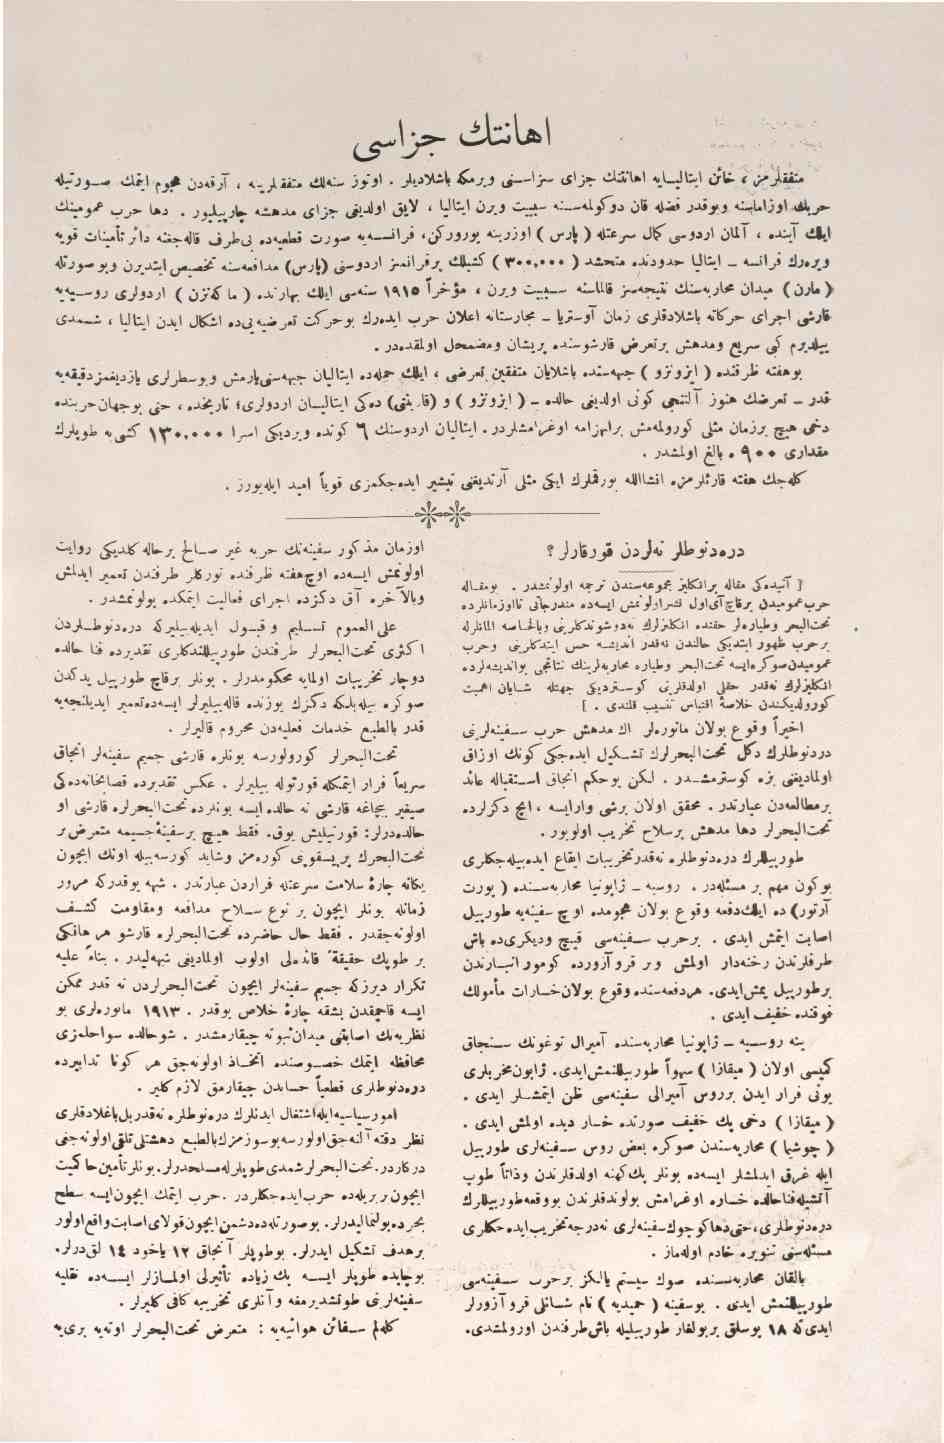 اهانتك جزاسی
متفقلرمز ، خائن ایتالیایه اهانتنك جزای سزاسنی ویرمكه باشلادیلر . اوتوز سنه‌لك متفقلرینه ، آرقه‌دن هجوم ایتمك صورتیله
حربك اوزاماسنه وبوقدر فضله قان دوكولمه‌سنه سببیت ویرن ایتالیا ، لایق اولدیغی جزای مدهشه چارپیلیور . دها حرب عمومینك
ایلك آینده ، آلمان اردوسی كمال سرعتله ( پارس ) اوزرینه یورورکن، فرانسه‌یه صورت قطعیه‌ده بی‌طرف قاله‌جغنه دائر تأمینات قویه
ویره‌رك فرانسه – ایتالیا حدودنده متحشد ( ۳۰۰،۰۰۰ ) كشیلك برفرانسز اردوسنی (پارس) مدافعه‌سنه تخصیص ایتدیرن وبو صورتله
( مارن ) میدان محاربه‌سنك نتیجه‌سز قالماسنه سببیت ویرن ، مؤخراً ۱۹۱۵ سنه‌سی ایلك بهارنده ( ماكه‌نزن ) اردولری روسیه‌یه
قارشی اجرای حركاته باشلادقلری زمان آوستریا – مجارستانه اعلان حرب ایده‌رك بوحركت تعرضیه‌یی‌ده اشكال ایدن ایتالیا ، شمدی
ییلدیرم كبی سریع ومدهش برتعرض قارشوسنده پریشان ومضمحل اولمقده‌در .
بوهفته ظرفنده ( ایزونزو ) جبهه‌سنده باشلایان متفقین تعرضی ، ایلك حمله‌ده ایتالیان جبهه‌سنی یارمش وبوسطرلری یازدیغمز دقیقه‌یه
قدر – تعرضك هنوز آلتنجی كونی اولدیغی حالده – ( ایزونزو ) و (قارینتی) ده‌كی ایتالیان اردولری؛ تاریخده ، حتی بوجهان حربنده
دخی هیچ برزمان مثلی كورولمه‌مش برانهزامه اوغرامشلردر . ایتالیان اردوسنك ۶ كونده ویردیكی اسرا ۱۳۰،۰۰۰ كشی‌یه طوپلرك
مقداری ۹۰۰ ه بالغ اولمشدر .
كله‌جك هفته قارئلرمزه انشاالله بورقملرك ایكی مثلی آرتدیغنی تبشیر ایده‌جكمزی قویاً امید ایله‌یورز .
دره‌دنوطلر نه‌لردن قورقارلر ؟
[ آتیده‌كی مقاله برانكلیز مجموعه‌سندن ترجمه اولونمشدر . بومقاله
حرب عمومیدن برقاچ آی‌اول نشر اولونمش ایسه‌ده مندرجاتی تااوزمانلرده
تحت‌البحر وطیاره‌لر حقنده انكلیزلرك نه‌دوشوندكلرینی وبالخاصه المانلرله
برحرب ظهور ایتدیكی حالدن نه‌قدر اندیشه حس ایتدكلرینی وحرب
عمومیدن صوكره‌ایسه تحت‌البحر وطیاره محاربه‌لرینك نتائجی بواندیشه‌لرده
انكلیزلرك نه‌قدر حقلی اولدقلرینی كوستردیكی جهتله شایان اهمیت
كورولدیكندن خلاصةً اقتباس تنسیب قلندی . ]
اخیراً وقوع بولان مانوره‌لر اك مدهش حرب سفینه‌لرینی
دردنوطلرك دكل تحت‌البحرلرك تشكیل ایده‌جكی كونك اوزاق
اولمادیغنی بزه كوسترمشدر . لكن بوحكم انجاق استقباله عائد
برمطالعه‌دن عبارتدر . محقق اولان برشی وارایسه ، ایچ دكزلرده
تحت‌البحرلر دها مدهش برسلاح تخریب اولویور .
طورپیللرك دره‌دنوطلره نه‌قدرتخریبات ایقاع ایده‌بیله‌جكلری
بوكون مهم بر مسئله‌در . روسیه – ژاپونیا محاربه‌سنده ( پورت
آرتور) ده ایلك‌دفعه وقوع بولان هجومده اوچ سفینه‌یه طورپیل
اصابت ایتمش ایدی . برحرب سفینه‌سی قیچ ودیكری‌ده باش
طرفلرندن رخنه‌دار اولمش وبر قروآزورده كومور انبارندن
برطورپیل یمش‌ایدی. هردفعه‌سنده وقوع بولان‌خسارات مأمولك
فوقنده خفیف ایدی .
ینه روسیه – ژاپونیا محاربه‌سنده آمیرال توغونك سنجاق
كمیسی اولان ( میقازا ) سهواً طورپیللنمش‌ایدی. ژاپون‌مخربلری
بونی فرار ایدن برروس آمیرالی سفینه‌سی ظن ایتمشلر ایدی .
( میقازا ) دخی پك خفیف صورتده خسار دیده اولمش ایدی .
( چوشیما ) محاربه‌سندن صوكره بعض روس سفینه‌لری طورپیل
ایله غرق ایدلمشلر ایسه‌ده بونلر پك كهنه اولدقلرندن وذاتاً طوپ
آتشیله‌فناحالده خساره اوغرامش بولوندقلرندن بووقعه‌طورپیللرك
دره‌دنوطلری، حتی‌دهاكوچوك‌سفینه‌لری نه‌درجه‌تخریب‌ایده‌جكلری
مسئله‌سنی تنویره خادم اوله‌ماز .
بالقان محاربه‌سنده صوك سیستم یالكز برحرب سفینه‌سی
طورپیللنمش ایدی . بوسفینه ( حمیدیه ) نام شانلی قروآزورلر
ایدی‌كه ۱۸ بوسلق بربولغار طورپیلیله باش‌طرفندن اورولمشدی.
اوزمان مذكور سفینه‌نك حربه غیر صالح برحاله كلدیكی روایت
اولونمش ایسه‌ده اوچ‌هفته ظرفنده توركلر طرفندن تعمیر ایدلمش
وبالآخره آق دكزده اجرای فعالیت ایتمكده بولونمشدر .
علی‌العموم تسلیم وقبول ایدیله‌بیلیركه دره‌دنوطلردن
اكثری تحت‌البحرلر طرفندن طورپیللندكلری تقدیرده فنا حالده
دوچار تخریبات اولمایه محكومدرلر . بونلر برقاچ طورپیل یدكدن
صوكره بیله‌بلكه دكزك یوزنده قاله‌بیلیرلر ایسه‌ده‌تعمیر ایدیلنجه‌یه
قدر بالطبع خدمات فعلیه‌دن محروم قالیرلر .
تحت‌البحرلر كورولورسه بونلره قارشی جسیم سفینه‌لر انجاق
سریعاً فرار ایتمكله قورتوله بیلیرلر . عكس تقدیرده قصابخانه‌ده‌كی
صیغیر بیچاغه قارشی نه حالده ایسه بونلرده تحت‌البحرلره قارشی او
حالده‌درلر: قورتیلیش یوق. فقط هیچ برسفینهٔ جسیمه متعرض بر
تحت‌البحرك پریسقوپنی كوره‌مز وشاید كورسه‌بیله اونك ایچون
یكانه چارهٔ سلامت سرعتله فراردن عبارتدر . شبهه یوقدركه مرور
زمانله بونلر ایچون بر نوع سلاح مدافعه ومقاومت كشف
اولونه‌جقدر . فقط حال حاضرده تحت‌البحرلره قارشو هر هانكی
بر طوپك حقیقةً فائده‌لی اولوب اولمادیغی شبهه‌لیدر . بناءً علیه
تكرار دیرزكه جسیم سفینه‌لر ایچون تحت‌البحرلردن نه قدر ممكن
ایسه قاچمقدن بشقه چارهٔ خلاص یوقدر . ۱۹۱۳ مانوره‌لری بو
نظریه‌نك اصابتنی میدان ثبوته چیقارمشدر . شوحالده سواحلمزی
محافظه ایتمك خصوصنده اتخاذ اولونه‌جق هر كونا تدابیرده
دره‌دنوطلری قطعیاً حسابدن چیقارمق لازم كلیر .
امورسیاسیه‌ایله‌اشتغال ایدنلرك دره‌نوطلره نه‌قدربل‌باغلادقلری
نظر دقته آلنه‌جق‌اولورسه بوسوزمزك‌بالطبع دهشتلی‌تلقی اولونه‌جغی
دركاردر. تحت‌البحرلر شمدی طوپلرله‌مسلحدرلر. بونلر تأمین‌حاكمیت
ایچون بربریله‌ده حرب‌ایده‌جكلردر . حرب ایتمك ایچون‌ایسه سطح
بحرده‌بولنمالیدرلر. بوصورتله‌ده‌دشمن ایچون‌قولای‌اصابت‌واقع‌اولور
برهدف تشكیل ایدرلر. بوطوپلر آنجاق ۱۲ یاخود ۱٤ لق‌درلر.
بوچاپده طوپلر ایسه پك زیاده تأثیرلی اولمازلر ایسه‌ده نقلیه
سفینه‌لرینی طوتشدیرمغه وآنلری تخریبه كافی كلیرلر .
كله‌لم سفائن هوائیه‌یه : متعرض تحت‌البحرلر اوته‌یه بری‌یه